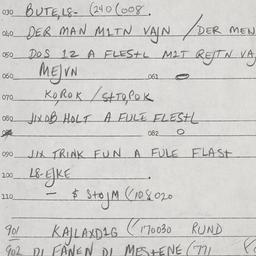 030 BUTE,L8- (240(008.
040 DER MAN MITN VAJN / DER MEN
050 DOS 12 A FLESTL MIT REJTN VA
060 MEJVN 061 0
070 KOROK / STOPOK
080 JIX OB HOLT A FULE FLESTL
082 0
090 JIX TRINK FUN A FULE FLAST
100 L8-EJKE .
110 — $ STOJM ((108020
901 KAJLAXDIG ((170030 RUND
902 DI FANEN DI MESTENE (771